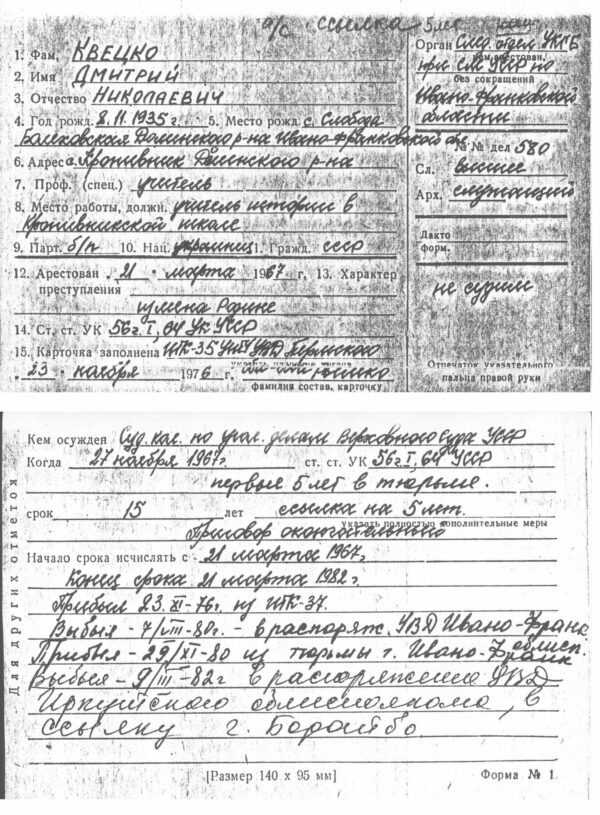 а/с ссылка 5 лет
1. Фам. КВЕЦКО
2. Имя ДМИТРИЙ
3. Отчество НИКОЛАЕВИЧ
4. Год рожд. 8.11.1935 г. 5. Место рожд. с. Слобода
Болеховская Долинского р-на Ивано-Франковской обл
6. Адрес с. Кропивник Долинского р-на
7. Проф. (спец.) учитель
8. Место работы, должн. учитель истории в
Кропивникской школе
9. Парт. б/п 10. Нац. украинец 11. Гражд. СССР
12. Арестован 21 марта 1967 г. 13. Характер
преступления
измена Родине
14. Ст. ст. УК 56 ч. I, 64 УК УССР
15. Карточка заполнена ИТК-35 УВД Пермского
23 ноября 1976 г.
фамилия состав. карточку
Орган След. отдел УКГБ
при СМ УССР по
без сокращений
Ивано-Франковской
области
№№ дел 580
Сл. высшее
Арх. служащий
Дакто
форм.
не судим
Отпечаток указательного
пальца правой руки
Для других отметок
Кем осужден Суд. кол. по угол. делам Верховного Суда УССР
Когда 27 ноября 1967г. ст. ст. УК 56 ч. I, 64 УССР
первые 5 лет в тюрьме.
срок 15 лет ссылка на 5 лет.
указать полностью дополнительные меры
Приговор окончательный
Начало срока исчислять с 21 марта 1967г
Конец срока 21 марта 1982г.
Прибыл 23.XI-76г. из ИТК-37.
Выбыл - 7/VIII-80г. - в распоряж. УВД Ивано-Франк.
облисп.
Прибыл - 29/XI-80 из тюрьмы г. Ивано-Франк
Выбыл - 9/III-82г в распоряжение УВД
Иркутского облисполкома, в
ссылку г. Бодайбо
[Размер 140 х 95 мм] Форма № 1